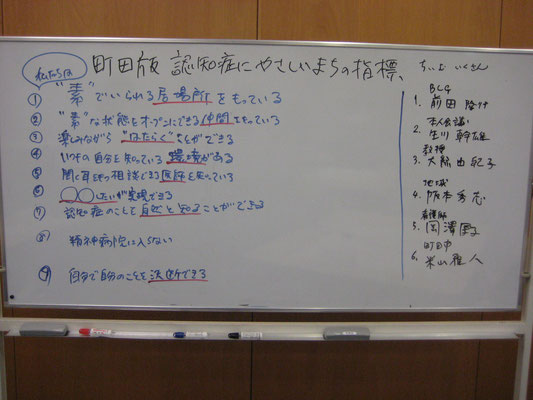 町田版 認知症にやさしいまちの指標、
私たちは
① "素"でいられる居場所をもっている
② "素"な状態をオープンにできる仲間をもっている
③ 楽しみながら "はたらく"ことができる
④ いつもの自分を知っている環境がある
⑤ 聞く耳を持つ相談できる医師を知っている
⑥ ○○したいが実現できる
⑦ 認知症のことを自然と知ることができる
⑧ 精神病院に入らない
⑨ 自分で自分のことを決断できる
BLG
1. 前田
本人会議
2. 生川 幹雄
教授
3. 大隅由紀子
地域
4. 阪本秀志
看護師
5.
町田市
6. 米山 雅人